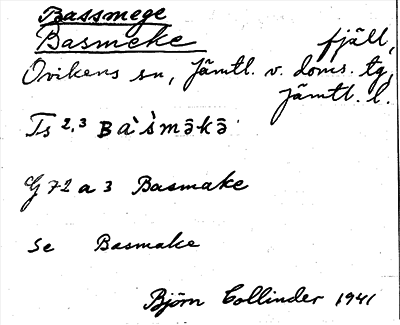 Bassmege
Basmeke fjäll,
Ovikens sn, Jämtl. v. doms. tg,
Jämtl. l.
Ts 2,3 Bàs̀məkə̄
G 72 a 3 Basmake
Se Basmake
Björn Collinder 1941